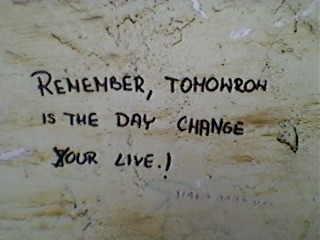 REMEMBER, TOMOWROW
IS THE DAY CHANGE
YOUR LIVE.!